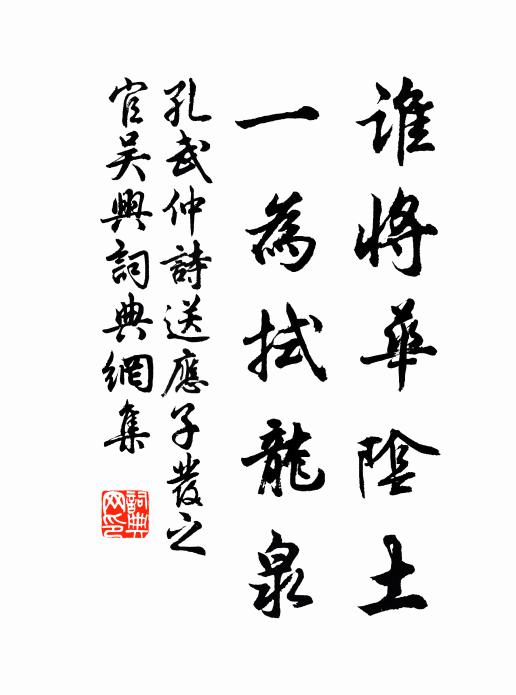 誰將華陰土
一為拭龍泉
孔武仲詩送應子發之
官吳興詞典網集
詞典網印